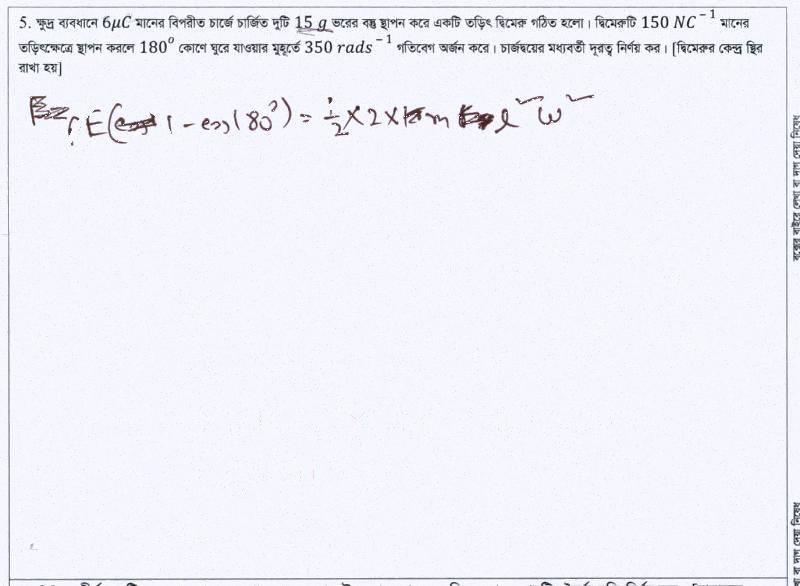 5. ক্ষুদ্র ব্যবধানে 6μC মানের বিপরীত চার্জে চার্জিত দুটি 15 g ভরের বস্তু স্থাপন করে একটি তড়িৎ দ্বিমেরু গঠিত হলো। দ্বিমেরুটি 150 NC⁻¹ মানের
তড়িৎক্ষেত্রে স্থাপন করলে 180° কোণে ঘুরে যাওয়ার মুহূর্তে 350 rads⁻¹ গতিবেগ অর্জন করে। চার্জদ্বয়ের মধ্যবর্তী দূরত্ব নির্ণয় কর। [দ্বিমেরুর কেন্দ্র স্থির
রাখা হয়]
E(1 - cos180°) = 1/2 × 2 × m l² ω²